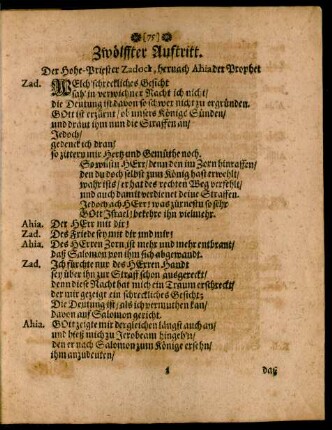 [75]
Zwölffter Aufftritt.
Der Hohe-Priester Zadock, hernach Ahia der Prophet
Zad. WElch schreckliches Gesicht
sah' in verwichner Nacht ich nicht/
die Deutung ist davon so schwer nicht zu ergründen.
GOtt ist erzürnt/ ob unsers Königs Sünden/
und dräut ihm nun die Straffen an/
Jedoch/
gedenck ich dran/
so zittern mir Hertz und Gemüthe noch.
So wilsu HErr/ denn den im Zorn hinraffen/
den du doch selbst zum König hast erwehlt/
wahr ists/ er hat des rechten Weg verfehlt/
und auch damit verdienet deine Straffen.
Jedoch ach HErr! was zürnestu so sehr
GOtt Israel! bekehre ihn vielmehr.
Ahia. Der HErr mit dir!
Zad. Des Friede sey mit dir und mir!
Ahia. Des HErren Zorn ist mehr und mehr entbrant/
daß Salomon von ihm sich abgewandt.
Zad. Ich fürchte nur des HErren Handt
sey über ihn zur Straff schon ausgereckt/
denn diese Nacht hat mich ein Traum erschreckt/
der mir gezeigt ein schreckliches Gesicht;
Die Deutung ist/ als ich vermuthen kan/
davon auf Salomon gericht.
Ahia. GOtt zeigte mir dergleichen längst auch an/
und hieß mich zu Jerobeam hingeh'n/
den er nach Salomon zum Könige ersehn/
ihm anzudeuten/
daß